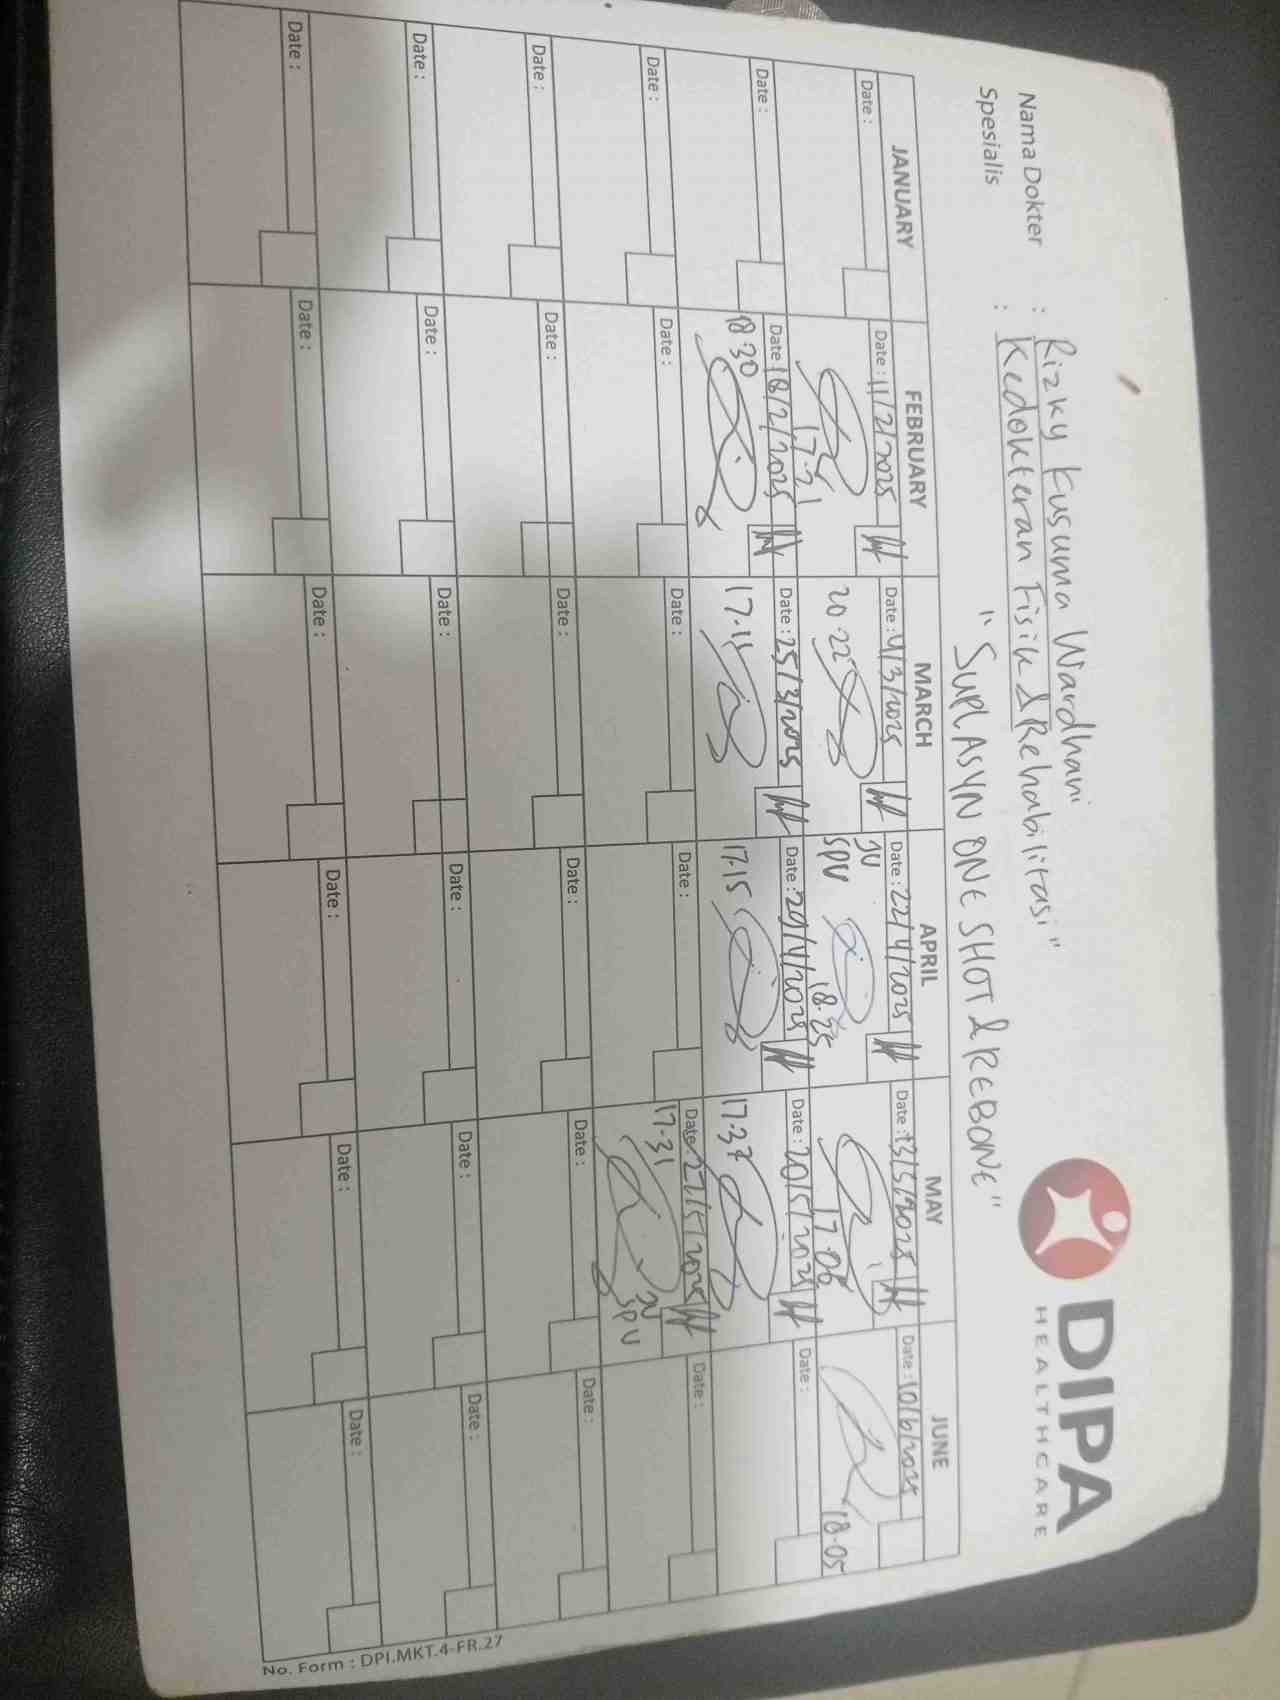 Nama Dokter : Rizky Kusuma Wardhani
Spesialis : Kedokteran Fisik & Rehabilitasi"
DIPA
HEALTHCARE
"SUPLASYN ONE SHOT & REBONE"
JANUARY FEBRUARY MARCH APRIL MAY JUNE
Date : Date : 11/2/2025 Date : 4/3/2025 Date : 22/4/2025 Date : 13/5/2025 Date : 10/6/2025
17.21 20.22 JV SPV 18.25 17.06 18.05
Date : Date : 18/2/2025 Date : 25/3/2025 Date : 29/4/2025 Date : 20/5/2025 Date :
18.30 17.15 17.15 17.37
Date : Date : Date : Date : Date : 27/5/2025 Date :
17.31 JV SPV
Date : Date : Date : Date : Date : Date :
Date : Date : Date : Date : Date : Date :
Date : Date : Date : Date : Date : Date :
No. Form : DPI.MKT.4-FR.27